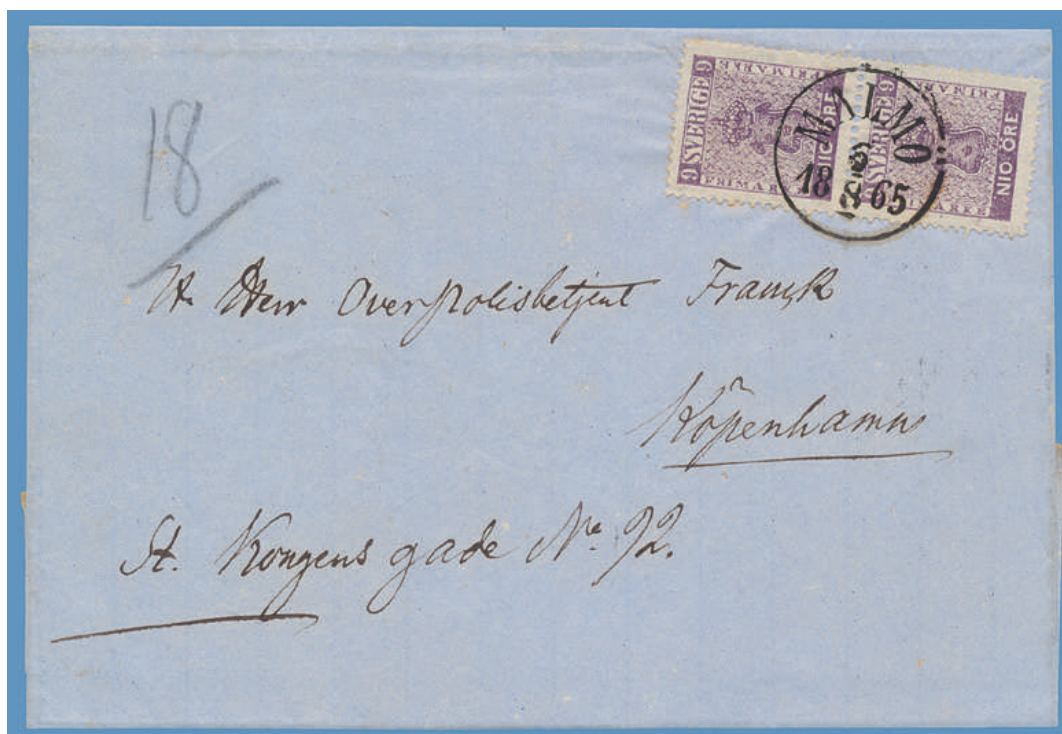 9 SVERIGE 9
FRIMÆRKE
NIO ÖRE
FRIMÆRKE
9 SVERIGE 9
FRIMÆRKE
NIO ÖRE
FRIMÆRKE
MALMÖ
18 65
18
Herr Överpolisbetjent Franck
Köpenhamn
St. Kongens gade No. 92.